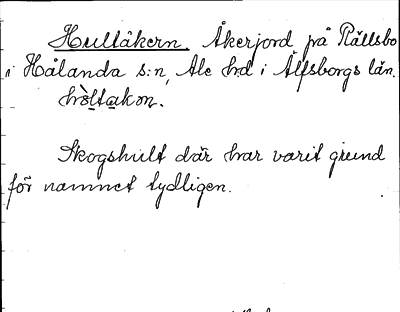 Hultåkern. Åkerjord på Rällsbo
i Hålanda s:n, Ale hd i Älfsborgs län.
hòltakon.
Skogshult där har varit grund
för namnet tydligen.